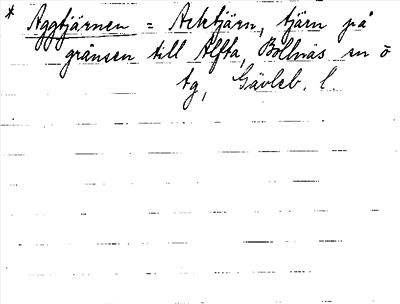 * Aggtjärnen = Acktjärn, tjärn på
gränsen till Alfta, Bollnäs sn o
tg, Gävleb. l.